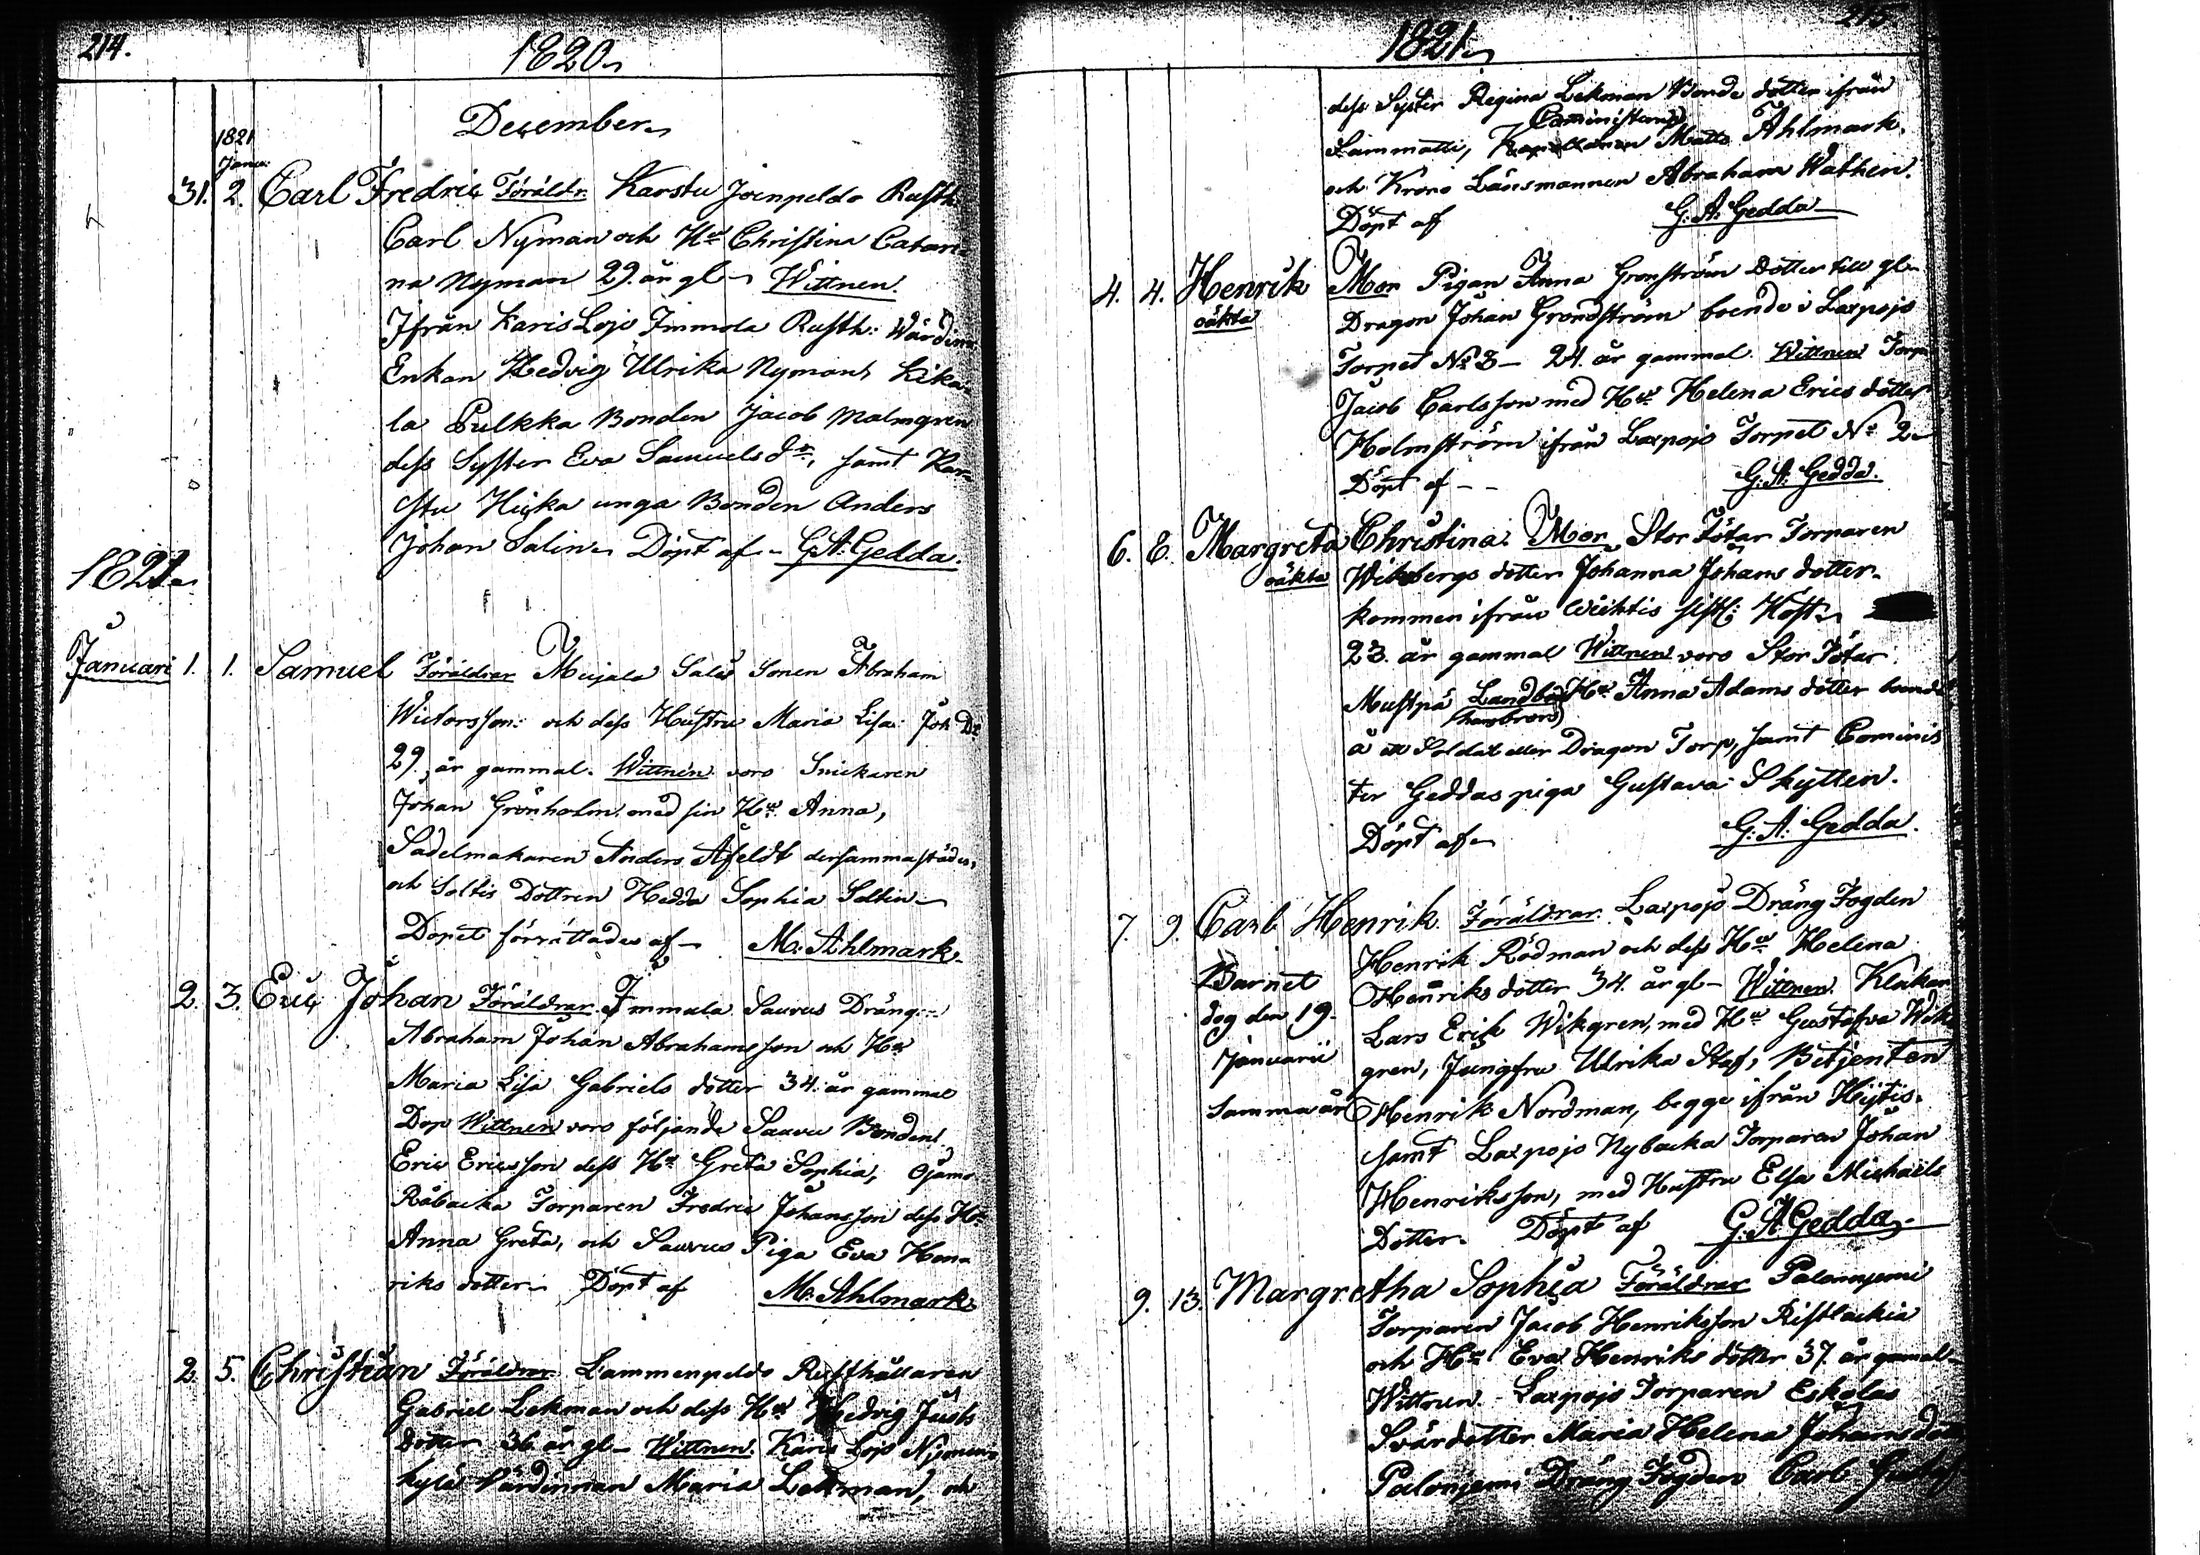 214.
1820
December
1821
Janua:
31. 2. Carl Fredric Föräldr. Karstu Joenpeldo Rusth:
Carl Nyman och Hu Christina Catari=
na Nyman 29. år gl– Wittnen.
Ifrån Karis Lojo Immola Rusth: Wärdinn
Enkan Hedvig Ulrika Nyman, Kika=
la Pulkka Bonden Jacob Malmgren
dess Syster Eva Samuels dr, samt Kar=
stu Hiska unga Bonden Anders
Johan Salin– Döpt af– G.A. Gedda.
1821
Januari 1. 1. Samuel Föräldrar Sonen Abraham
Wictorsson: och dess Hustru Maria Lisa Joh Dr
29. år gammal. Wittnen voro Snickaren
Johan Grönholm med sin Hu Anna,
Sadelmakaren Anders Åfeldt dersammastädes,
och Soltis Dottren Hedda Sophia Soltin–
Dopet förrättades af– M. Ahlmark.
2. 3. Eric Johan Föräldrar Immala Saurus Dräng
Abraham Johan Abrahamsson och Hu
Maria Lisa Gabriels dotter 34. år gammal
Dop Wittnen voro följande Bonden
Eric Ericsson dess Hu Greta Sophia, Ojamo
Råbacka Torparen Fredric Johansson dess Hu
Anna Greta, och Saurus Piga Eva Hen=
riks dotter– Döpt af M. Ahlmark
2. 5. Christian Föräldrar Lammenpeldo Rusthållaren
Gabriel Lekman och dess Hu Hedvig
dotter 36 år gl– Wittnen Karis Lojo
kylä Värdinnan Maria Lekman, och
215.
1821
dess Syster Regina Lekman Bonde dotter ifrån
Cominister
Sammatti, Kapellanen Matts Ahlmark.
och Krono Länsmannen Abraham Wathen.
Döpt af G. A. Gedda
4. 4. Henrik Mor Pigan Anna Gronström Dotter till gl–
oäkta Dragon Johan Grondström boende i Laxpojo
Torpet No 3– 24. år gammal. Wittnen Torp
Jacob Carlsson med Hu Helena Erics dotter
Holmström ifrån Laxpojo Torpet No 2–
Döpt af – – G. A. Gedda.
6. 8. Margreta Christina. Mor Stor Torparen
oäkta Wiksbergs dotter Johanna Johans dotter–
kommen ifrån Wichtis sistl: Höst–
23. år gammal Wittnen voro Stor
Landbo Hu Anna Adams dotter boende
å en Soldat eller Dragon Torp, samt Cominis
ter Geddas piga Gustava Skytten.
Döpt af– G. A. Gedda.
7. 9. Carl Henrik. Föräldrar Laxpojo Dräng Fogden
Henrik Rödman och dess Hu Helena
Barnet Henriks dotter 34. år gl– Wittnen Klakan
dog den 19. Lars Erik Wikgren, med Hu Gustafva Wik
Januarii gren, Jungfru Ulrika Stof, Betjenten
samma år Henrik Nordman, begge ifrån Hijtis.
samt Laxpojo Nybacka Torparen Johan
Henriksson, med Hustru Elsa Michaels
Dotter. Döpt af G. A. Gedda.
9. 13. Margretha Sophia Föräldrar Paloniemi
Torparen Jacob Henriksson Ristlackia
och Hu Eva Henriks dotter 37. år gamal–
Wittnen– Laxpojo Torparen Eskolas
Svärdotter Maria Helena Johans dott
Paloniemi Dräng Fogden Carl Gustaf